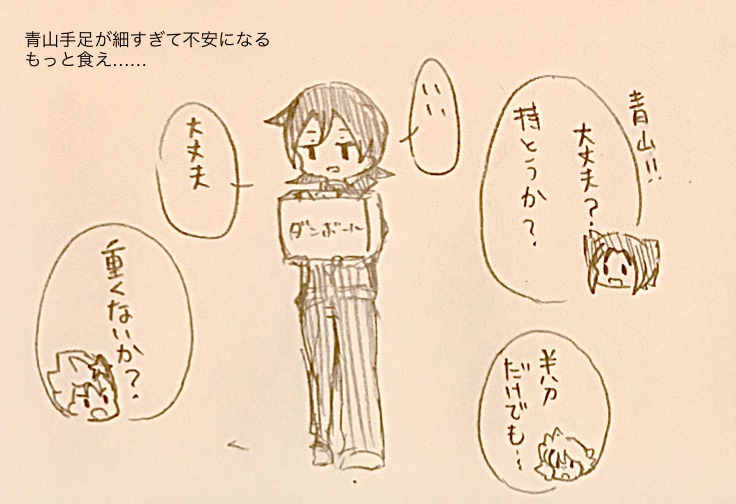 青山手足が細すぎて不安になる
もっと食え……
青山!!
大丈夫?
持とうか?
いい
大丈夫
ダンボール
重くないか?
半分
だけでも…